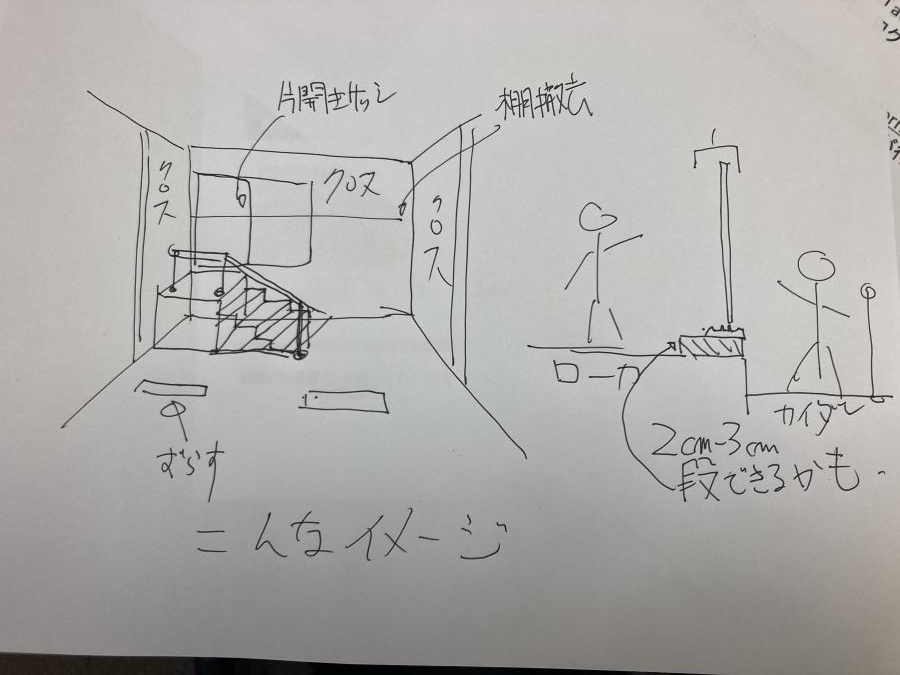 片開きサッシ
棚撤去
クロス
クロス
クロス
ずらす
ローカ
カイダン
2cm-3cm
段できるかも.
こんなイメージ